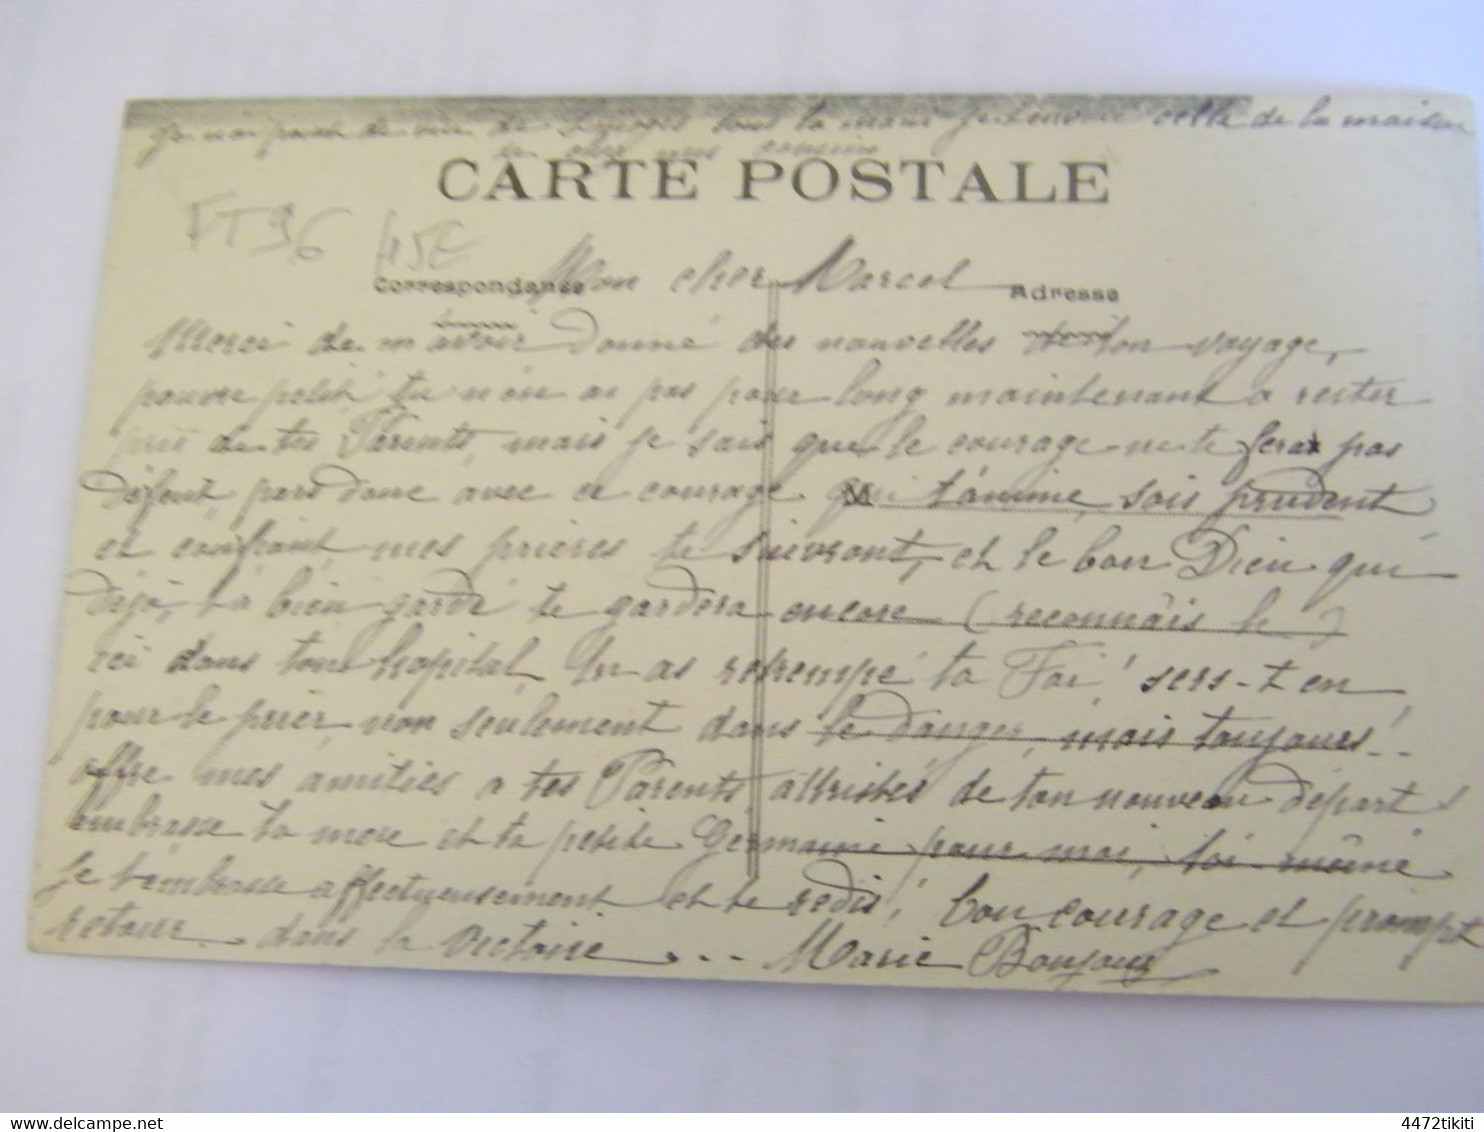 Je n'ai pas de vue de sous la main je t'envoie celle de la maison
de chez mes cousins
CARTE POSTALE
FT96 15€
Correspondance
Adresse
Mon cher Marcel
Merci de m'avoir donné des nouvelles de ton voyage,
pauvre petit tu n'en as pas pour long maintenant a rester
près de tes Parents, mais je sais que le courage ne te fera pas
défaut, pars donc avec ce courage qui t'anime, sois prudent
et confiant, mes prières te suivront, et le bon Dieu qui
déjà t'a bien gardé te gardera encore (reconnais le)
ici dans ton hopital, tu as retrempé ta Foi! sers-t en
pour le prier, non seulement dans le danger, mais toujours!..
offre mes amitiés a tes Parents attristés de ton nouveau départ
embrasse ta mère et ta petite Germaine pour moi, toi-même
je t'embrasse affectueusement et te redis! bon courage et prompt
retour dans la victoire... Marie Bonjour
4472tikiti